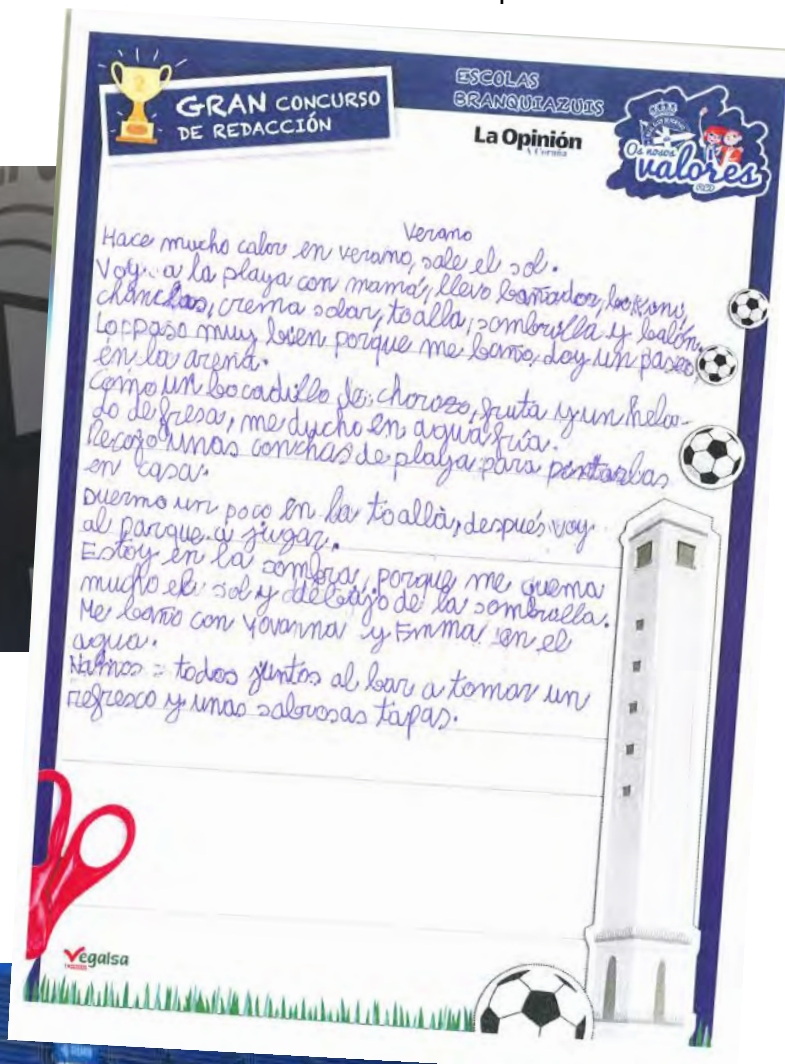 GRAN CONCURSO
DE REDACCIÓN
ESCOLAS
BRANQUIAZUIS
La Opinión
A Coruña
Os nosos
valores
RCD
Verano
Hace mucho calor en verano, sale el sol.
Voy a la playa con mamá, llevo bañador, bokini,
chanclas, crema solar, toalla, sombrilla y balón.
Lo paso muy bien porque me baño, doy un paseo,
en la arena.
Como un bocadillo de chorozo, fruta y un hela-
do de fresa, me ducho en agua fría.
Recojo unas conchas de playa para pintarlas
en casa.
Duermo un poco en la toalla, después voy
al parque a jugar.
Estoy en la sombra, porque me quema
mucho el sol y debajo de la sombrilla.
Me baño con Yovanna y Emma en el
agua.
Vamos todos juntos al bar a tomar un
refresco y unas sabrosas tapas.
Vegalsa